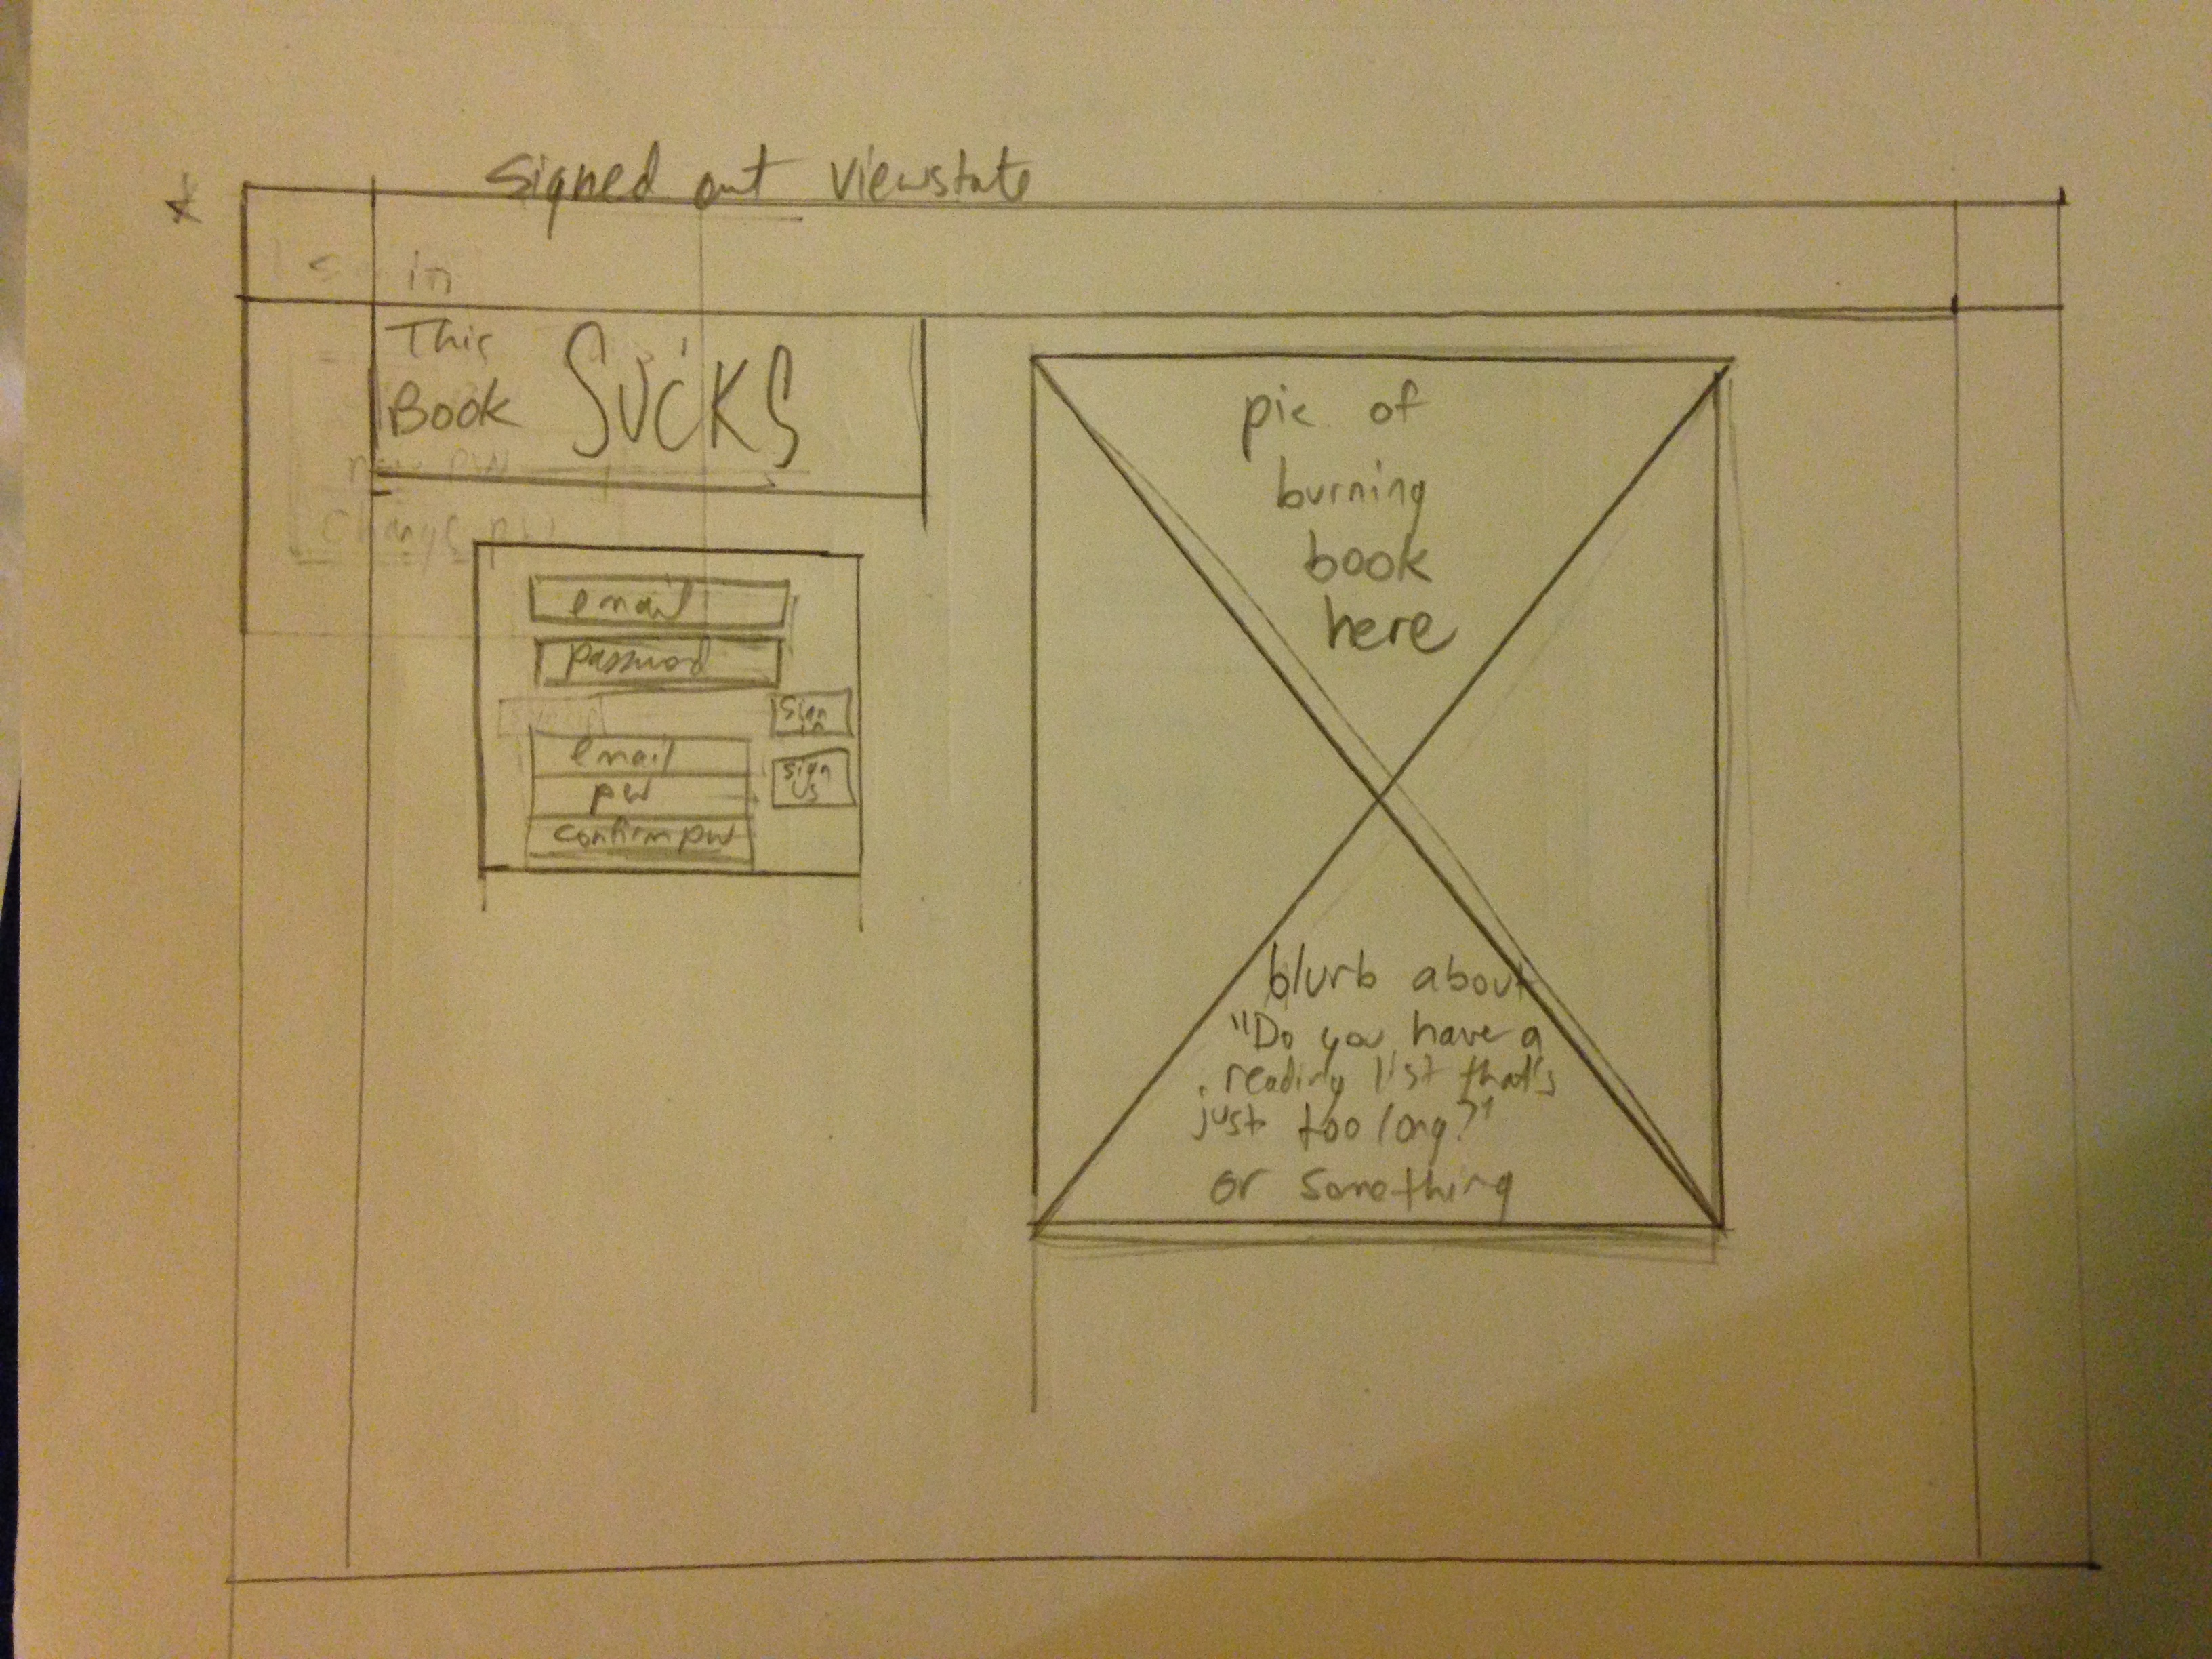 Signed out viewstate
in
This
Book SUCKS
new pw
Change pw
email
password
Sign
in
email
sign
pw
confirm pw
pic of
burning
book
here
blurb about
"Do you have a
reading list that's
just too long?"
or something